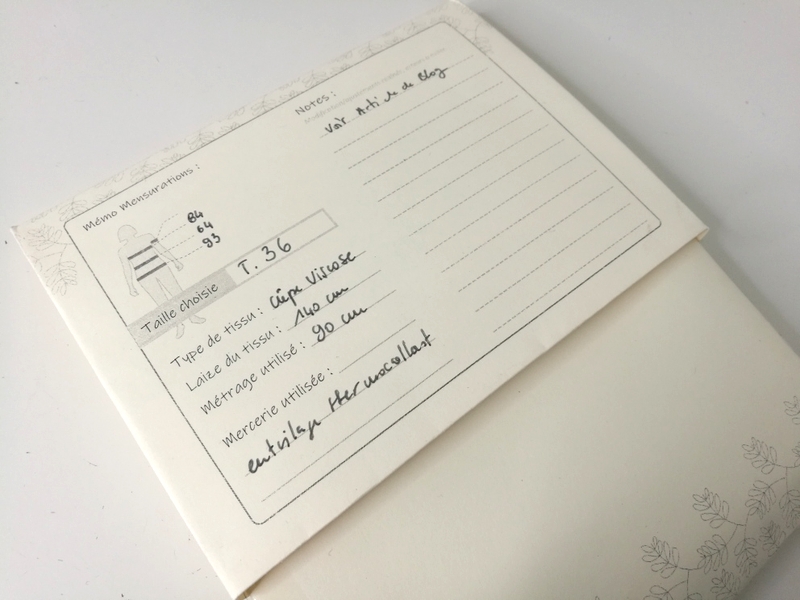 Mémo Mensurations :
84
64
93
Taille choisie T. 36
Type de tissu : crêpe Viscose
Laize du tissu : 140 cm
Métrage utilisé : 90 cm
Mercerie utilisée :
entoilage thermocollant
Notes :
Voir Article de Blog